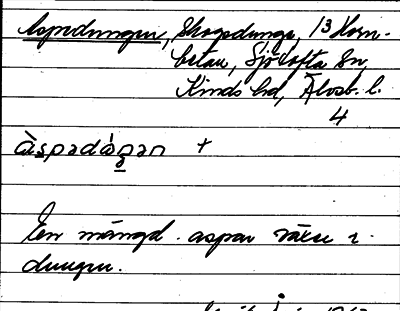 Aspedungen, Skogsdunge, 13 Horn-
betau, Sjötofta Sn,
Kinds hd, Älvsb. l.
4
àspədàŋən +
En mängd aspar växer i
dungen.